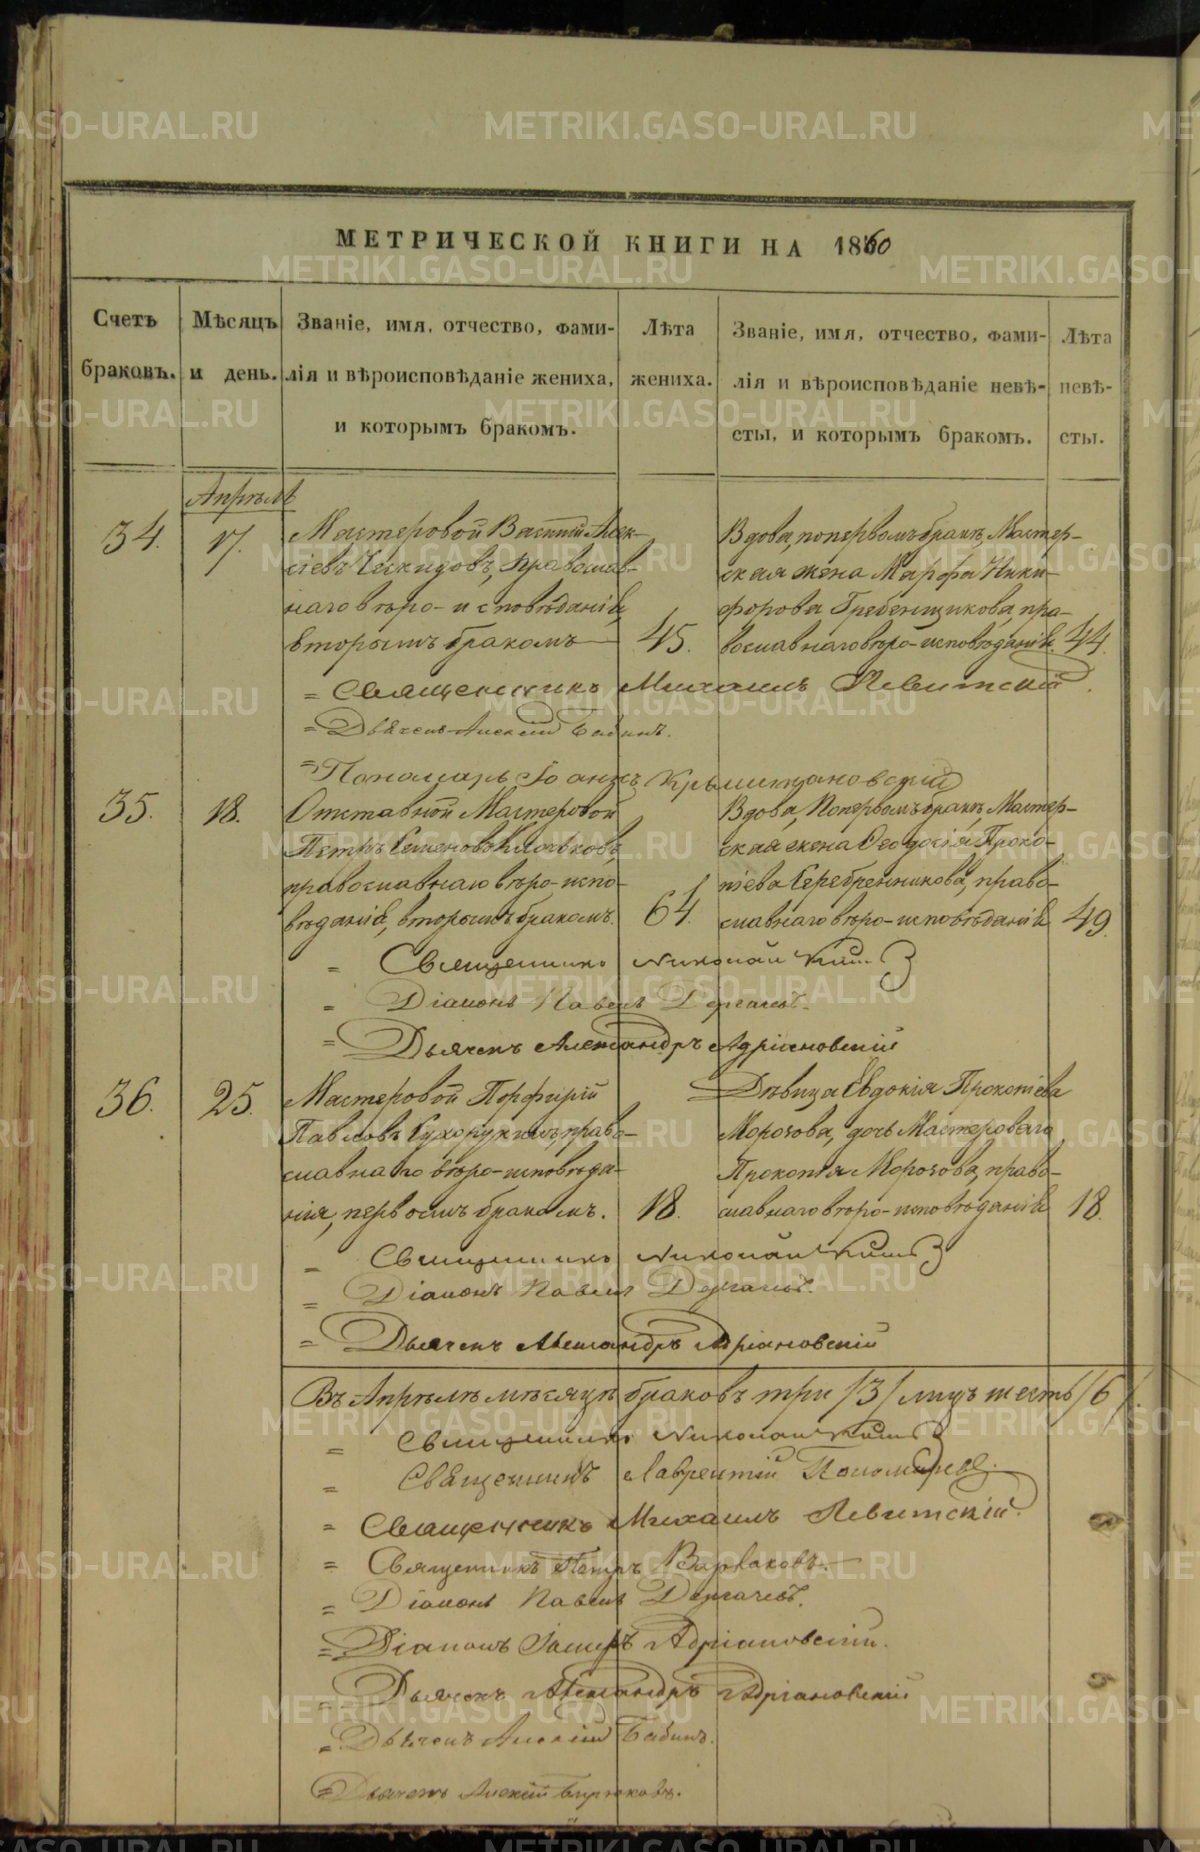 МЕТРИЧЕСКОЙ КНИГИ НА 1860
Счетъ браковъ.
Мѣсяцъ и день.
Званіе, имя, отчество, фами-
лія и вѣроисповѣданіе жениха,
и которымъ бракомъ.
Лѣта жениха.
Званіе, имя, отчество, фами-
лія и вѣроисповѣданіе невѣ-
сты, и которымъ бракомъ.
Лѣта невѣ-
сты.
Апрѣль
34. 17.
Мастеровой Василій Алек-
сіевъ, Православ-
наго вѣро-исповѣданія,
вторымъ бракомъ 45.
Вдова, по первомъ бракѣ, Мастер-
ская жена Марфа Ники-
форова Гребенщикова, пра-
вославнаго вѣро-исповѣданія 44.
Священникъ Михаилъ Левитскій
Дьячекъ Алексій Бабинъ.
Пономарь Іоаннъ
35. 18.
Отставной Мастеровой
Петръ Семеновъ Клочковъ,
православнаго вѣро-испо-
вѣданія, вторымъ бракомъ. 64.
Вдова, По первомъ бракѣ, Мастер-
ская жена Ѳеодосія Проко-
піева Серебренникова, право-
славнаго вѣро-исповѣданія 49.
Священникъ Николай
Діаконъ Павелъ Дергачевъ.
Дьячекъ Александръ Адріановскій
36. 25.
Мастеровой Порфирій
Павловъ Сухорукихъ, право-
славнаго вѣро-исповѣда-
нія, первымъ бракомъ. 18.
Дѣвица Евдокія Прокопіева
Морозова, дочь Мастероваго
Прокопія Морозова, право-
славнаго вѣро-исповѣданія 18.
Священникъ Николай
Діаконъ Павелъ Дергачевъ.
Дьячекъ Александръ Адріановскій
Въ Апрѣлѣ мѣсяцѣ браковъ три /3/ лицъ шесть /6/.
Священникъ Николай
Священникъ Лаврентій Пономаревъ.
Священникъ Михаилъ Левитскій.
Священникъ Петръ Варваковъ.
Діаконъ Павелъ Дергачевъ.
Діаконъ Адріановскій.
Дьячекъ Александръ Адріановскій
Дьячекъ Алексій Бабинъ.
Дьячекъ Алексій Бирюковъ.
METRIKI.GASO-URAL.RU